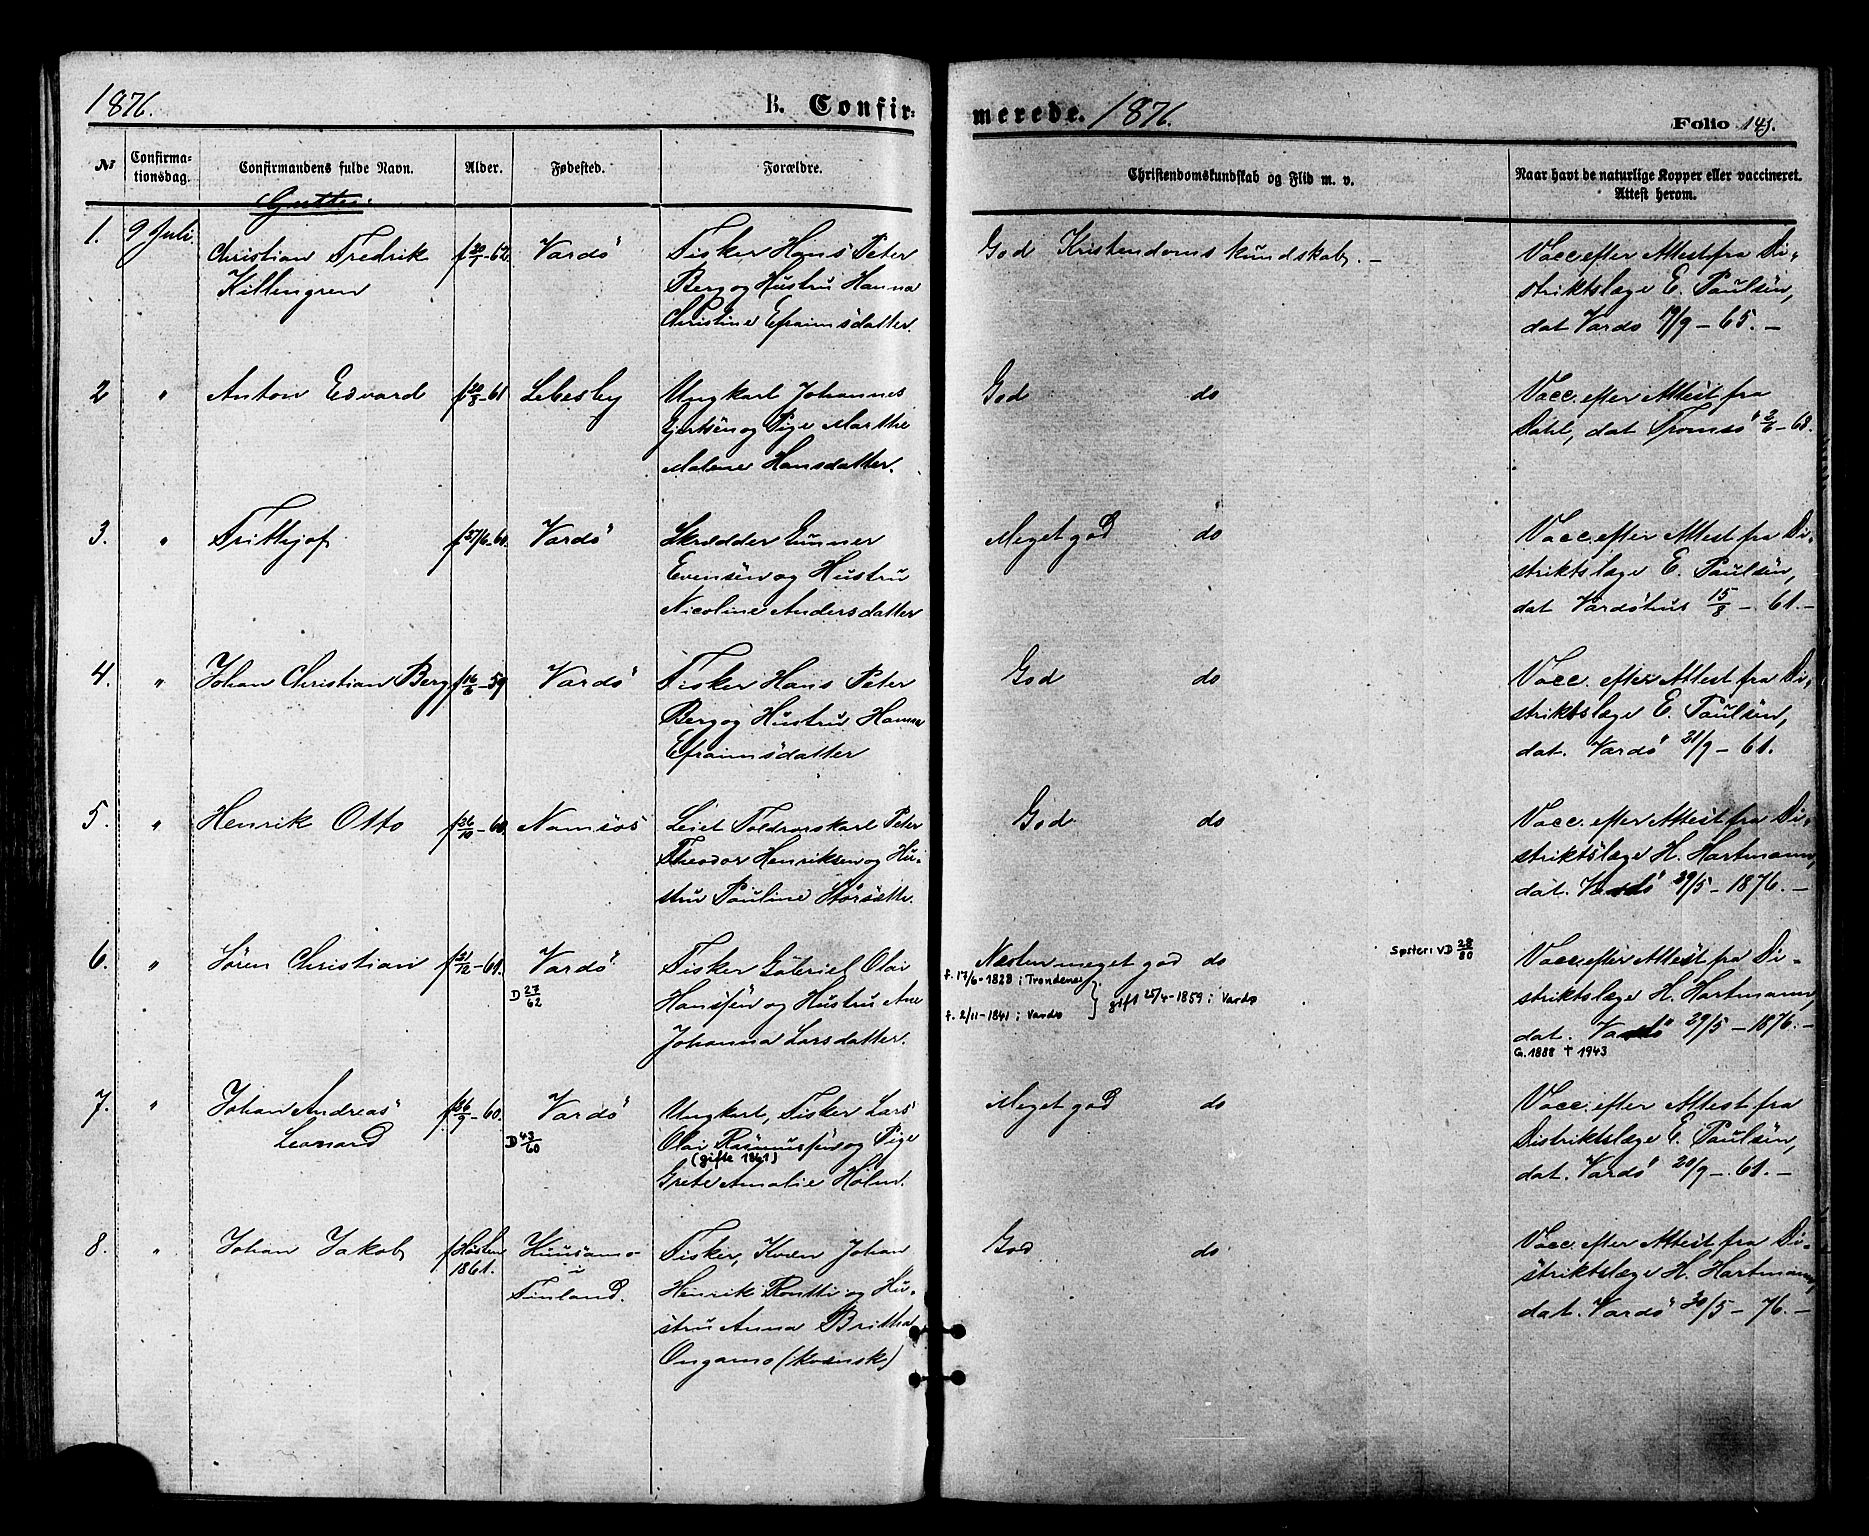 1876.
B. Confir-
merede. 1876.
Folio 143.
№
Confirma-
tionsdag.
Confirmandens fulde Navn.
Alder.
Fødested.
Forældre.
Christendomskundskab og Flid m. v.
Naar havt de naturlige Kopper eller vaccineret.
Attest herom.
Gutter.
1. 9 Juli. Christian Fredrik
Killengren
Vardö
Fisker Hans Peter
Berg og Hustru Hanna
Christine Efraimsdatter.
God Kristendomskundskab. —
Vacc. efter Attest fra Di-
striktslæge E. Paulsen,
dat Vardö 9/9 — 65. —
2 " Anton Edvard f 20/8 — 61 Lebesby
Ungkarl Johannes
Gjertsen og Pige Marthe
Malene Hansdatter.
God do
Vacc. efter Attest fra
Dahl, dat Tromsö 2/6 — 68.
3. " Frithjof Vardö
Skrædder Gunner
Evensen og Hustru
Nicoline Andersdatter
Meget god do
Vacc. efter Attest fra Di-
striktslæge E. Paulsen,
dat Vardöhus 15/8 — 61. —
4. " Johan Christian Berg f 16/6 — 59 Vardö
Fisker Hans Peter
Berg og Hustru Hanna
Efraimsdatter
God do
Vacc. efter Attest fra Di-
striktslæge E. Paulsen,
dat. Vardö 21/9 — 61.
5. " Henrik Otto f 26/10 — 60 Namsos
Leiet Toldrorskarl Peter
Theodor Henriksen og Hu-
stru Pauline Storsætte.
God do
Vacc. efter Attest fra Di-
striktslæge H. Hartmann,
dat. Vardö 29/5 — 1876. —
6. " Sören Christian f 31/12 — 61. Vardö
D 27/62
Fisker Gabriel Olai
Hanssen og Hustru Ane
Johanna Larsdatter.
Næsten meget god do
Søster: VD 28/80
f. 17/6-1828 i Trondenes
f. 2/11-1841 i Vardø
} gift 25/4-1859 i Vardø
Vacc. efter Attest fra Di-
striktslæge H. Hartmann,
dat. Vardö 29/5 — 1876. —
G. 1888 † 1943
7. " Johan Andreas
Leonard
f 26/9 — 60. Vardö
D 43/60
Ungkarl, Fisker Lars
Olai Rasmussen og Pige
(gifte 1861)
Grete Amalie Holm.
Meget god do
Vacc. efter Attest fra
Distriktslæge E. Paulsen,
dat. Vardö 20/9 — 61. —
8. " Johan Jakob f Høsten
1861.
Kuusamo
i
Finland.
Fisker, Kvæn Johan
Henrik Rontti og Hu-
stru Anna Britha
Ongamo (kvænsk)
God do
Vacc. efter Attest fra Di-
striktslæge H. Hartmann,
dat. Vardö 30/5 — 76. —